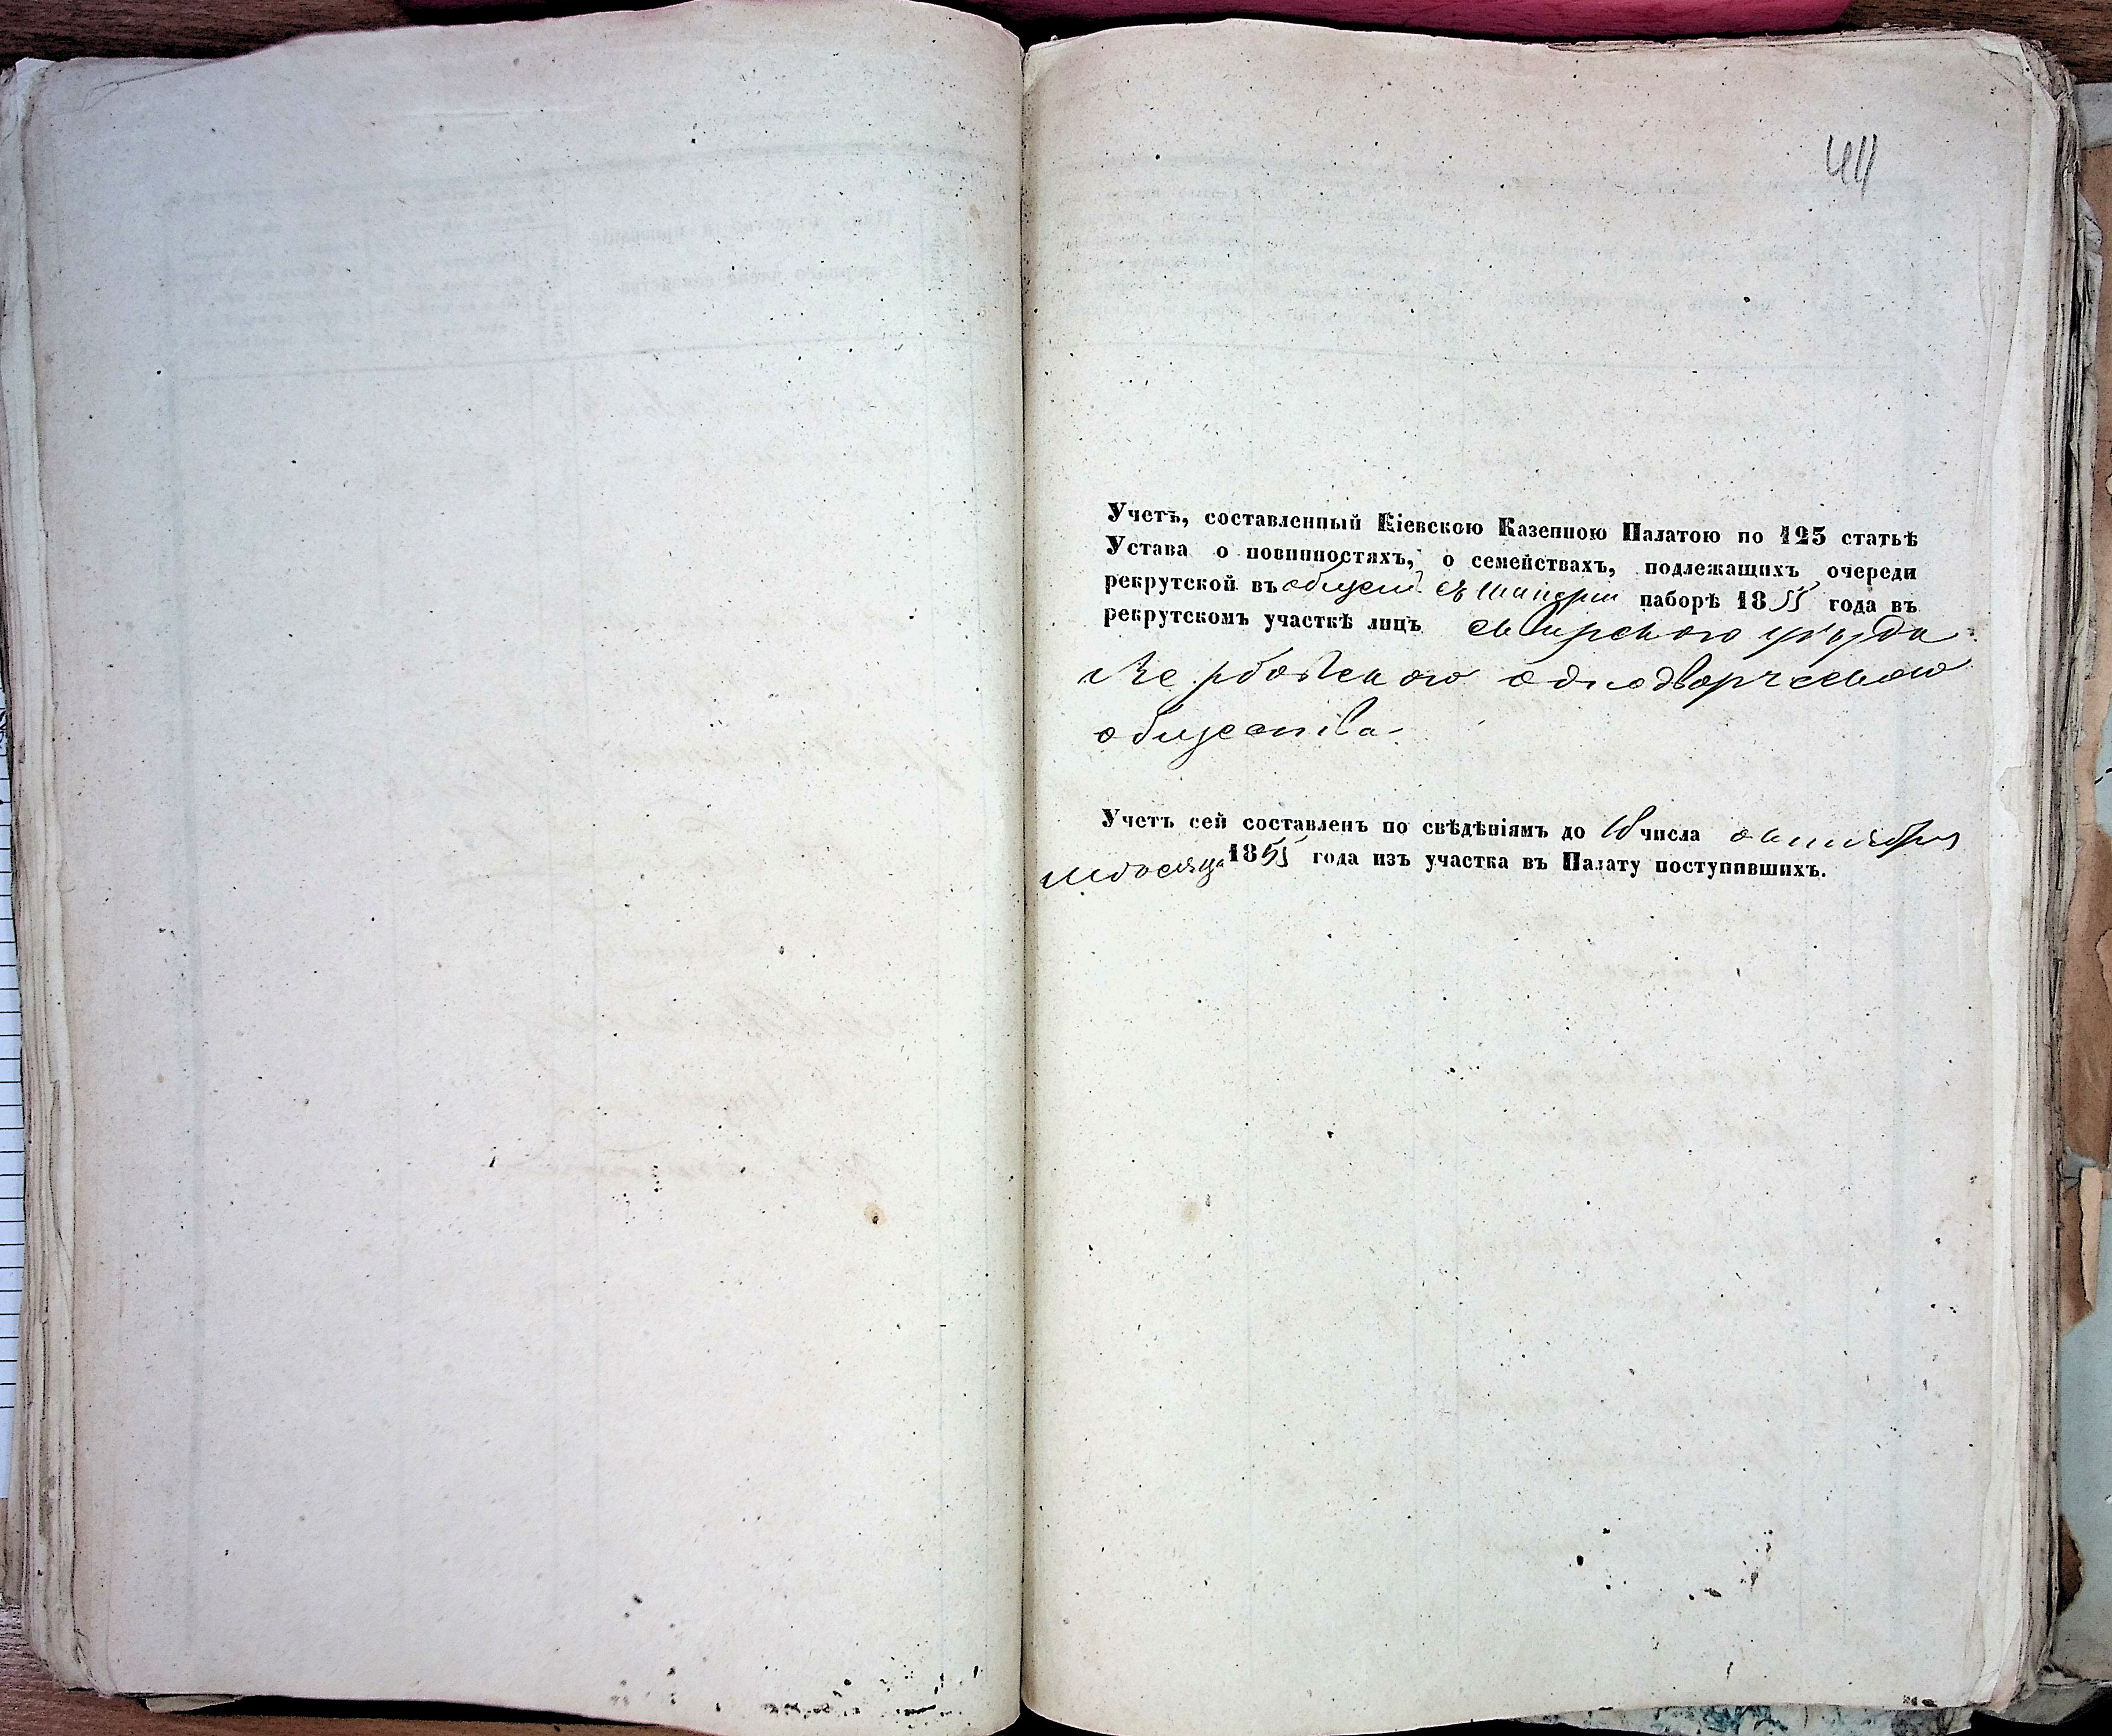 411
Учетъ, составленный Кіевскою Казенною Палатою по 125 статьѣ
Устава о повинностяхъ, о семействахъ, подлежащихъ очереди
рекрутской въ общемъ съ Имперіи наборѣ 1855 года въ
рекрутскомъ участкѣ лицъ сквирского уѣзда
общества
Учетъ сей составленъ по свѣдѣніямъ до 18 числа октября
мѣсяца 1855 года изъ участка въ Палату поступившихъ.